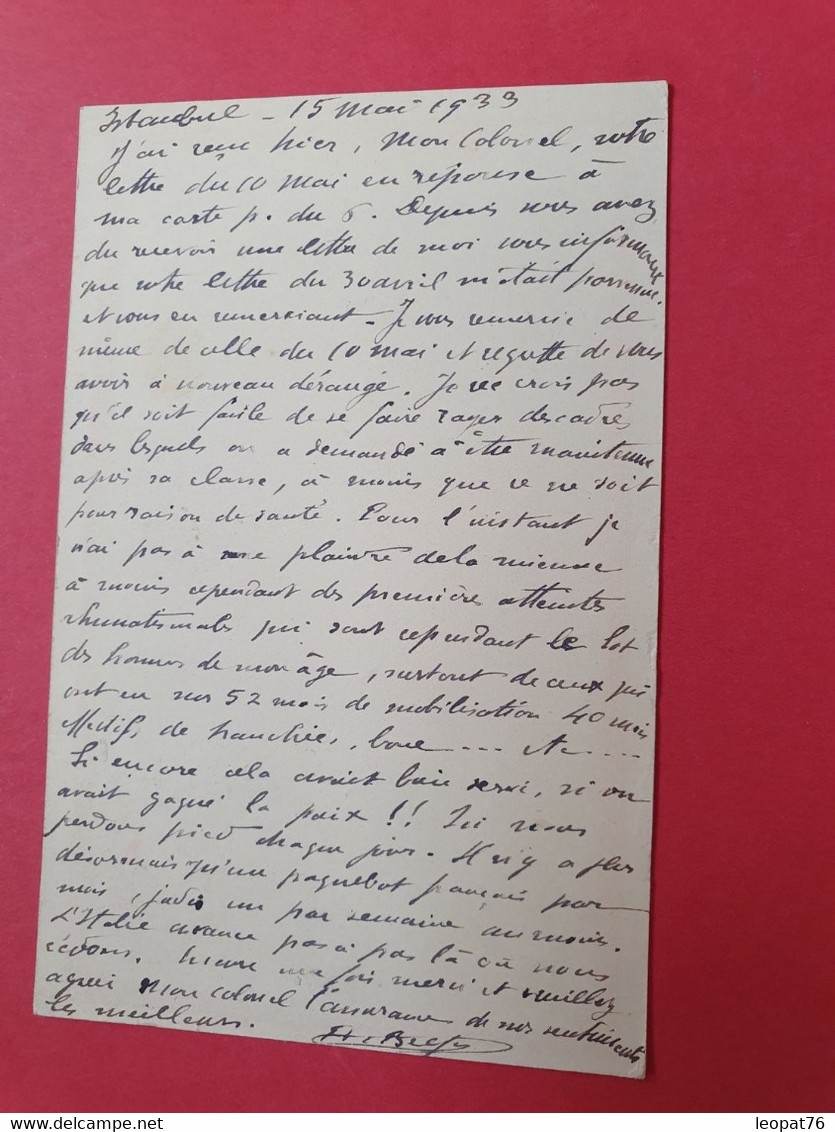 Istanbul - 15 Mai 1933
J'ai reçu hier, Mon Colonel, votre
lettre du 10 Mai en réponse à
ma carte p. du 6. Depuis vous avez
du recevoir une lettre de moi vous informant
que votre lettre du 30 avril m'était parvenue
et vous en remerciant - Je vous remercie de
même de celle du 10 mai et regrette de vous
avoir à nouveau dérangé. Je ne crois pas
qu'il soit facile de se faire rayer des cadres
dans lesquels on a demandé à être maintenu
après sa classe, à moins que ce ne soit
pour raison de santé. Pour l'instant je
n'ai pas à me plaindre de la mienne
à moins cependant des premières atteintes
rhumatismales qui sont cependant le lot
des hommes de mon âge, surtout de ceux qui
ont eu sur 52 mois de mobilisation 40 mois
effectifs de tranchées, boue ---- etc ----
Si encore cela avait bien servi, si on
avait gagné la paix !! Ici nous
perdons pied chaque jour. Il n'y a plus
désormais qu'un paquebot français par
mois, jadis un par semaine au moins.
L'Italie avance pas à pas là où nous
cédons. Encore une fois merci et veuillez
agréer Mon Colonel l'assurance de nos sentiments
les meilleurs.
leopat76
www.delcampe.net